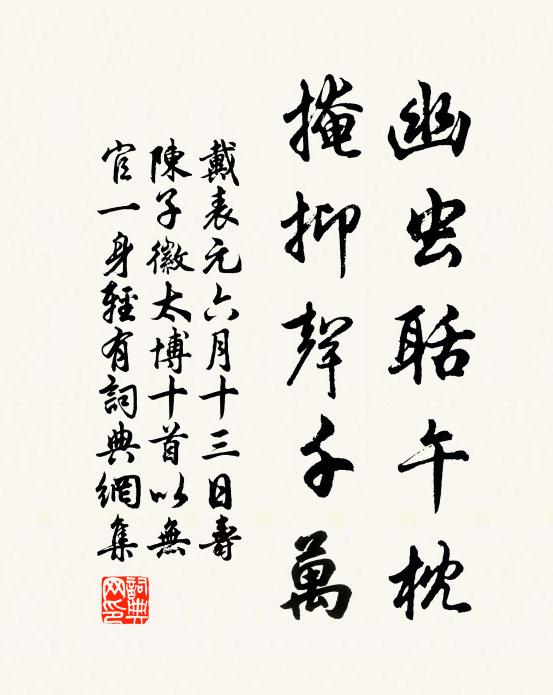 幽虫聒午枕
掩抑聲千萬
戴表元六月十三日壽
陳子徽太博十首以無
官一身輕有詞典網集
詞典网印